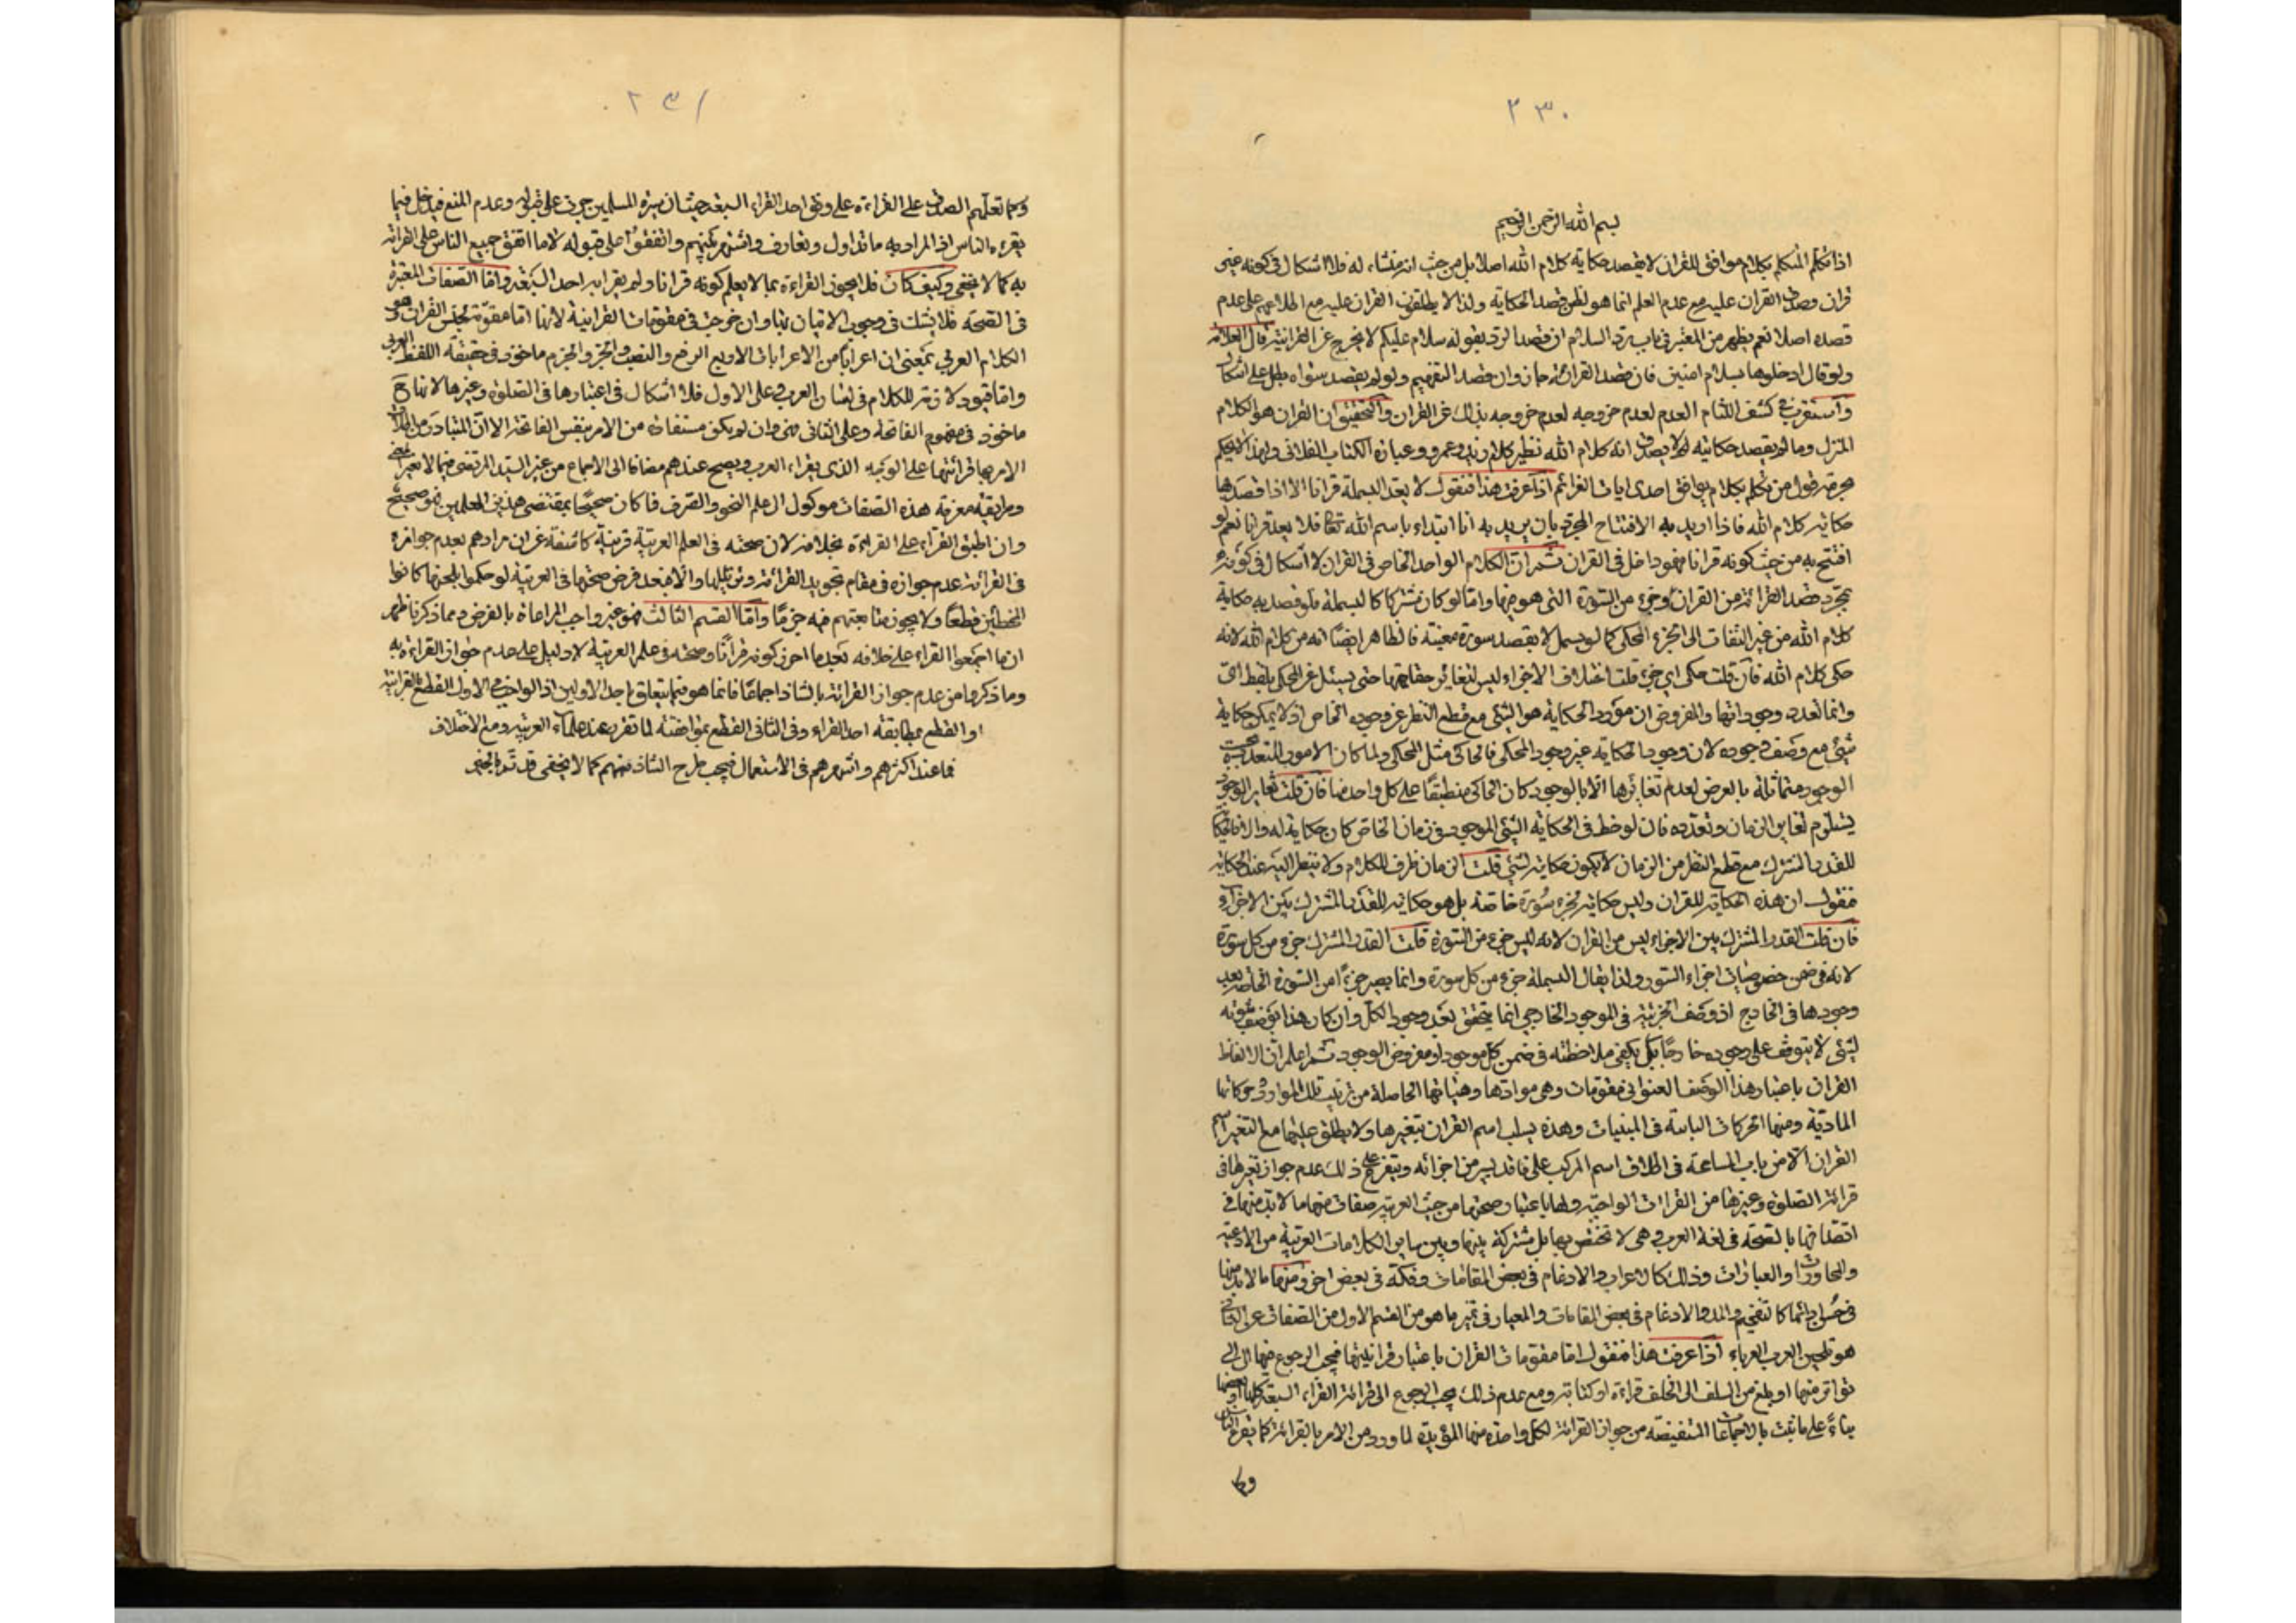 ٢٣٠
بسم الله الرحمن الرحيم
اذا تكلم المتكلم بكلام موافق للقران لا يقصد حكاية كلام الله اصلا بل من حيث انه منشاء له فلا اشكال فى كونه غير
قران وصدق القران عليه مع عدم العلم انما هو لظن قصد الحكاية ولذا لا يطلقون القران عليه مع اطلاعهم على عدم
قصده اصلا نعم يظهر من المعتبر فى باب رد السلام ان قصد الرد بقوله سلام عليكم لا يخرج عن القرانية قال العلامة
ولو قال ادخلوها بسلام امنين فان قصد القرائة جاز وان قصد التفهيم ولو لم يقصد سواه بطل على اشكال
واستقرب فى كشف اللثام العدم لعدم خروجه بذلك عن القران والتحقيق ان القران هو الكلام
المنزل وما لم يقصد حكايته لا يصدق انه كلام الله نظير كلام زيد وعمرو وعبارة الكتاب الفلانى ولهذا لا يحكم
بحرمة قول من تكلم بكلام يوافق احدى ايات العزائم اذا عرفت هذا فنقول لا يعد البسملة قرانا الا اذا قصد بها
حكاية كلام الله فاذا اريد به الافتتاح المجرد بان يريد به انا ابتداء باسم الله تعالى فلا يعد قرانا نعم لو
افتتح به من حيث كونه قرانا فهو داخل فى القران ثم ان الكلام الواحد الخاص فى القران لا اشكال فى كونه
بمجرد قصد القرائة من القران وجزء من السورة التى هو منها واما لو كان مشتركا كالبسملة فلو قصد به حكاية
كلام الله من غير التفات الى الجزء المحكى كما لو بسمل لا بقصد سورة معينة فالظاهر ايضا انه من كلام الله لانه
حكى كلام الله فان قلت حكى اي جزء قلت اختلاف الاجزاء ليس لتغاير حقايقها حتى يسئل عن المحكى بلفظ اى
وانما تعدده وجوداتها والمفروض ان مورد الحكاية هو الشئ مع قطع النظر عن وجوده الخاص اذ لا يمكن حكاية
شئ مع وصف وجوده لان وجود الحكاية غير وجود المحكى فالحاكى مثل المحكى ولما كان الامور المتعددة بحسب
الوجود متماثلة بالعرض لعدم تغايرها الا بالوجود كان الحاكى منطبقا على كل واحد منها فان قلت تغاير الوجود
يستلزم تغاير الزمان وتعدده فان لوحظ فى الحكاية الشئ الموجود فى زمان الخاص كان حكاية له والا فالحكاية
للقدر المشترك مع قطع النظر من الزمان لا يكون حكاية لشئ قلت الزمان ظرف للكلام ولا ينظر اليه عند الحكاية
فنقول ان هذه الحكاية للقران وليس حكاية لجزء سورة خاصة بل هو حكاية للقدر المشترك بين الاجزاء
فان قلت القدر المشترك بين الاجزاء ليس من القران لانه ليس جزء من السورة قلت القدر المشترك جزء من كل سورة
لانه فى ضمن خصوصيات اجزاء السور ولذا يقال البسملة جزء من كل سورة وانما يصير جزءا من السورة الخاصة بعد
وجودها فى الخارج اذ وصف الجزئية فى الموجود الخارجى انما يتحقق بعد وجود الكل وان كان هذا الوصف ثبوته
لشئ لا يتوقف على وجوده خارجا بل يكفى ملاحظته فى ضمن كل موجود او مفروض الوجود ثم اعلم ان الالفاظ
القران باعتبار هذا الوصف العنوانى مقومات وهى موادها وهيئاتها الحاصلة من ترتيب تلك المواد وحركاتها
المادية ومنها الحركات البانية فى المبنيات وهذه يسلب اسم القران بتغيرها ولا يطلق عليها مع التغير اسم
القران الا من باب المسامحة فى اطلاق اسم المركب على فاقد يسير من اجزائه ويتفرع على ذلك عدم جواز تغيرها فى
قرائة الصلوة وغيرها من القراات الواجبة ولها باعتبار صحتها من حيث العربية صفات منها ما لا بد منها فى
اتصافها بالصحة فى لغة العرب وهى لا تختص بها بل مشتركة بينها وبين ساير الكلامات العربية من الادعية
والمحاورات والعبارات وذلك كالاعراب والادغام فى بعض المقامات وفكه فى بعض اخر ومنها ما لا بد منها
فى حسن ادائها كالتفخيم والمد والادغام فى بعض المقامات والمعيار فى تميز ما هو من القسم الاول من الصفات عن الثانى
هو تلحين العرب العرباء اذا عرفت هذا فنقول اما مقومات القران باعتبار قرانيتها فيجب الرجوع فيها الى ما
تواتر منها او بلغ من السلف الى الخلف قراءة او كتابة ومع عدم ذلك يجب الرجوع الى قرائة القراء السبعة كلها او بعضها
بناء على ما ثبت بالاجماعات المستفيضة من جواز القرائة لكل واحدة منها المؤيدة لما ورد من الامر بالقرائة كما يقرء الناس
وكما
٢٣١
وكما تعلمتم الصادق على القراءة على وفق احد القراء السبعة حيث ان سيرة المسلمين جرت على قبوله وعدم المنع فيدخل فيما
يقرء الناس اذ المراد به ما تداول وتعارف واشتهر بينهم واتفقوا على قبوله لا ما اتفق جميع الناس على القرائة
به كما لا يخفى وكيف كان فلا يجوز القراءة بما لا يعلم كونه قرانا ولم يقرا به احد السبعة واما الصفات المعتبرة
فى الصحة فلا يشك فى وجوب الاتيان بها وان خرجت فى مقومات القرانية لانها اما مقومة لجنس القران وهو
الكلام العربى بمعنى ان اعرابا من الاعرابات الاربع الرفع والنصب والجر والجزم ماخوذ فى حقيقة اللفظ العربى
واما قيود لازمة للكلام فى لسان العرب وعلى الاول فلا اشكال فى اعتبارها فى الصلوة وغيرها لانها ح
ماخوذ فى مفهوم الفاتحة وعلى الثانى فهى وان لم يكن مستفادة من الامر بنفس الفاتحة الا ان المتبادر من اطلاق
الامر بها قرائتها على الوجه الذى يقراء العرب ويصح عندهم مضافا الى الاجماع من غير السيد المرتضى فيما لا يغير المعنى
وطريقة معرفة هذه الصفات موكول الى علم النحو والصرف فما كان صحيحا بمقتضى هذين العلمين فهو صحيح
وان اطبق القراء على القراءة بخلافه لان صحته فى العلم العربية قرينة كاشفة عن ان مرادهم بعدم جوازه
فى القرائة عدم جوازه فى مقام تجويد القرائة وترتيلها والا فبعد فرض صحتها فى العربية لو حكموا بلحنها كانوا
المخطئين قطعا ولا يجوز متابعتهم فيه جزما واما القسم الثالث فهو غير واجب المراعاة بالفرض ومما ذكرنا ظهر
ان ما اجمعوا القراء على خلافه بعد ما احرز كونه قرانا وصحته فى علم العربية لا دليل على عدم جواز القراءة به
وما ذكروا من عدم جواز القرائة بالشاذ اجماعا فانما هو فيما يتعلق باحد الاولين اذ الواجب فى الاول القطع بالقرانية
او القطع بمطابقة احد القراء وفى الثانى القطع بموافقته لما تقرر عند علماء العربية ومع الاختلاف
فما عند اكثرهم واشهرهم فى الاستعمال فيجب طرح الشاذ منهم كما لا يخفى قد تم بالخير